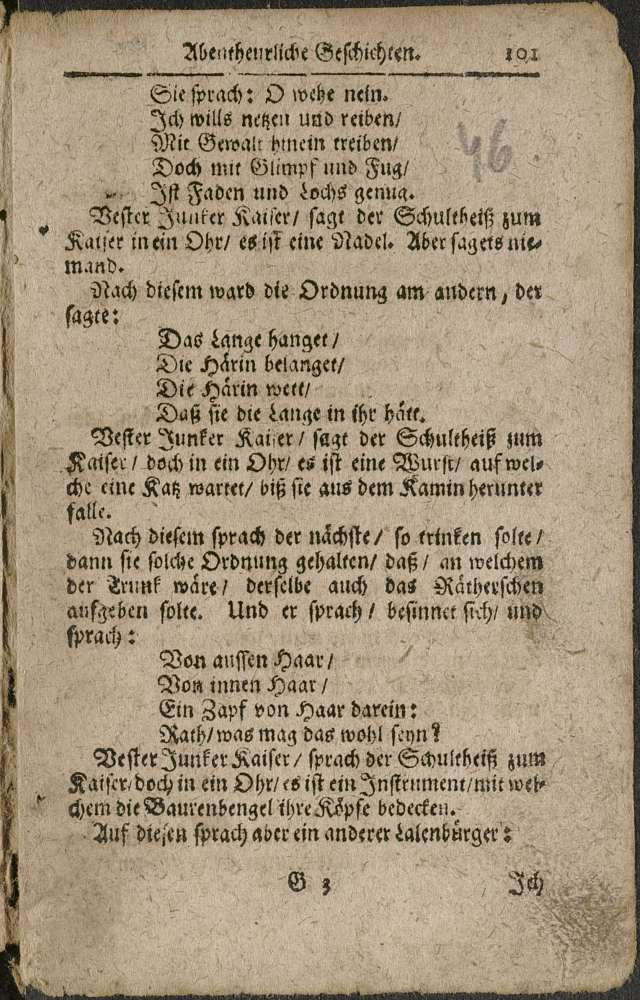 Abentheurliche Geschichten. 101
Sie sprach: O wehe nein.
Ich wills netzen und reiben/
Mit Gewalt hinein treiben/
Doch mit Glimpf und Fug/
Ist Faden und Lochs genug.
46
Vester Junker Kaiser/ sagt der Schultheiß zum
Kaiser in ein Ohr/ es ist eine Nadel. Aber sagets nie-
mand.
Nach diesem ward die Ordnung am andern, der
sagte:
Das Lange hanget/
Die Härin belanget/
Die Härin wett/
Daß sie die Lange in ihr hätt.
Vester Junker Kaiser/ sagt der Schultheiß zum
Kaiser/ doch in ein Ohr/ es ist eine Wurst/ auf wel-
che eine Katz wartet/ biß sie aus dem Kamin herunter
falle.
Nach diesem sprach der nächste/ so trinken solte/
dann sie solche Ordnung gehalten/ daß/ an welchem
der Trunk wäre/ derselbe auch das Rätherschen
aufgeben solte. Und er sprach/ besinnet sich/ und
sprach:
Von aussen Haar/
Von innen Haar/
Ein Zapf von Haar darein:
Rath/ was mag das wohl seyn?
Vester Junker Kaiser/ sprach der Schultheiß zum
Kaiser/ doch in ein Ohr/ es ist ein Instrument/ mit wel-
chem die Baurenbengel ihre Köpfe bedecken.
Auf diesen sprach aber ein anderer Lalenbürger:
G 3 Ich